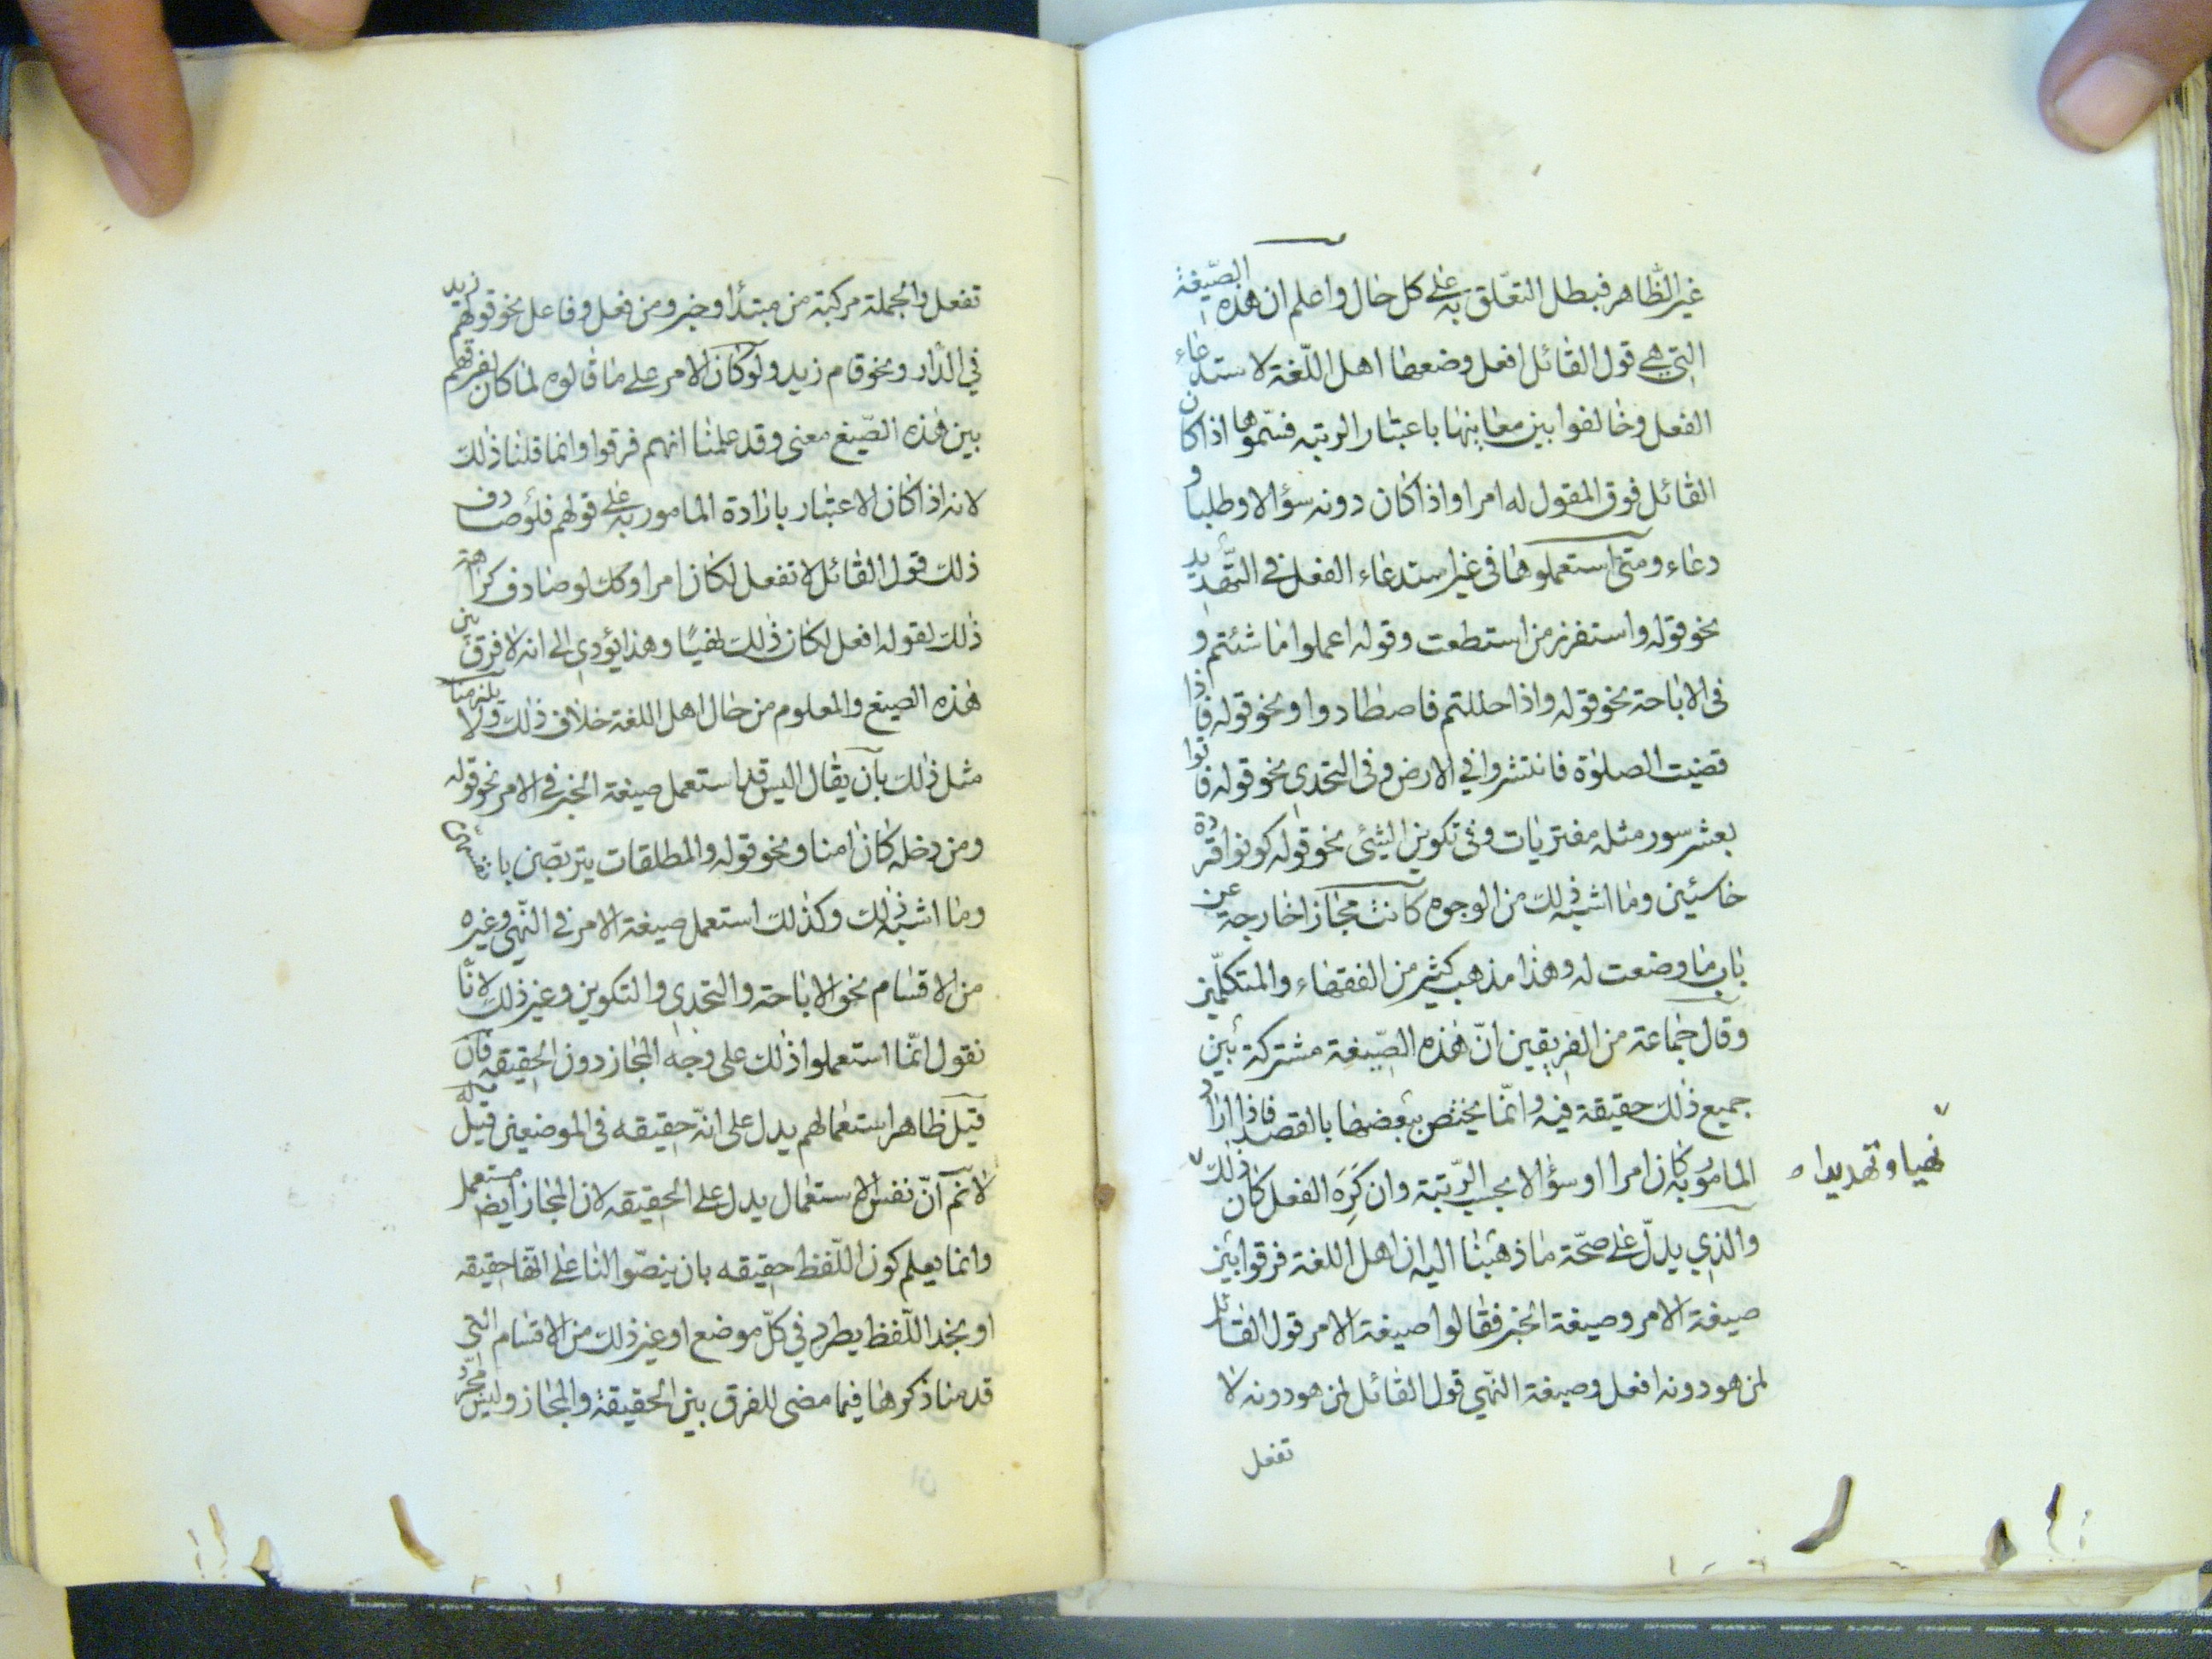 غير الظّاهر فبطل التعّلق به على كل حال واعلم ان هذه الصّيغة
التي هي قول القائل افعل وضعها اهل اللّغة لاستدعاء
الفعل وخالفوا بين معانيها باعتبار الرتبه فسمّوها اذا كان
القائل فوق المقول له امرا واذا كان دونه سؤالا وطلبا و
دعاء ومتى استعملوها فى غير استدعاء الفعل في التّهديد
نحو قوله واستفزز من استطعت وقوله اعملوا ما شئتم و
فى الاباحة نحو قوله واذا حللتم فاصطادوا ونحو قوله فاذا
قضيت الصلوٰة فانتشروا في الارض وفى التحدي نحو قوله فاتوا
بعشر سور مثله مفتريات وفى تكوين الشئ نحو قوله كونوا قردة
خاسئين وما اشبه ذلك من الوجوه كانت مجازا خارجة عن
باب ما وضعت له وهذا مذهب كثير من الفقهاء والمتكلّمين
وقال جماعة من الفريقين انّ هذه الصّيغة مشتركة بين
جميع ذلك حقيقة فيه وانّما يختص ببعضها بالقصد فاذا اراد
المامور به كان امرا او سؤالا بحسب الرّتبة وان كَرِهَ الفعل كان ذلك
نهيا وتهديدا
والذي يدلّ على صحّة ما ذهبنا اليه ان اهل اللغة فرقوا بين
صيغة الامر وصيغة الخبر فقالوا صيغة الامر قول القائل
لمن هو دونه افعل وصيغة النّهي قول القائل لمن هو دونه لا
تفعل
تفعل والجملة مركبة من مبتدأ وخبر ومن فعل وفاعل نحو قولهم زيد
في الدّار ونحو قام زيد ولو كان الامر على ما قالوه لما كان لفرقهم
بين هذه الصّيغ معنى وقد علمنا انهم فرقوا وانما قلنا ذلك
لانه اذا كان الاعتبار بارادة المامور به على قولهم فلو صادف
ذلك قول القائل لا تفعل لكان امرا وكك لو صادف كراهة
ذلك لقوله افعل لكان ذلك نهيًا وهذا يؤدي الى انه لا فرق بين
هذه الصيغ والمعلوم من حال اهل اللغة خلاف ذلك ولا يلزمنا
مثل ذلك بان يقال اليس قد استعمل صيغة الخبر في الامر نحو قوله
ومن دخله كان امنا ونحو قوله والمطلقات يتربصن بانفسهن
وما اشبه ذلك وكذلك استعمل صيغة الامر في النّهي وغيره
من الاقسام نحو الاباحة والتحدي والتكوين وغير ذلك لانّا
نقول انّما استعملوا ذلك على وجه المجاز دون الحقيقه فان
قيل ظاهر استعمالهم يدل على انّه حقيقه فى الموضعين قيل له
لا نّم انّ نفس الاستعمال يدل على الحقيقه لان المجاز ايضا مستعمل
وانما يعلم كون اللّفظ حقيقه بان ينصّوا لنا على انّها حقيقه
او نجد اللّفظ يطرد في كلّ موضع او غير ذلك من الاقسام التى
قدمنا ذكرها فيما مضى للفرق بين الحقيقة والمجاز وليس مجّرد